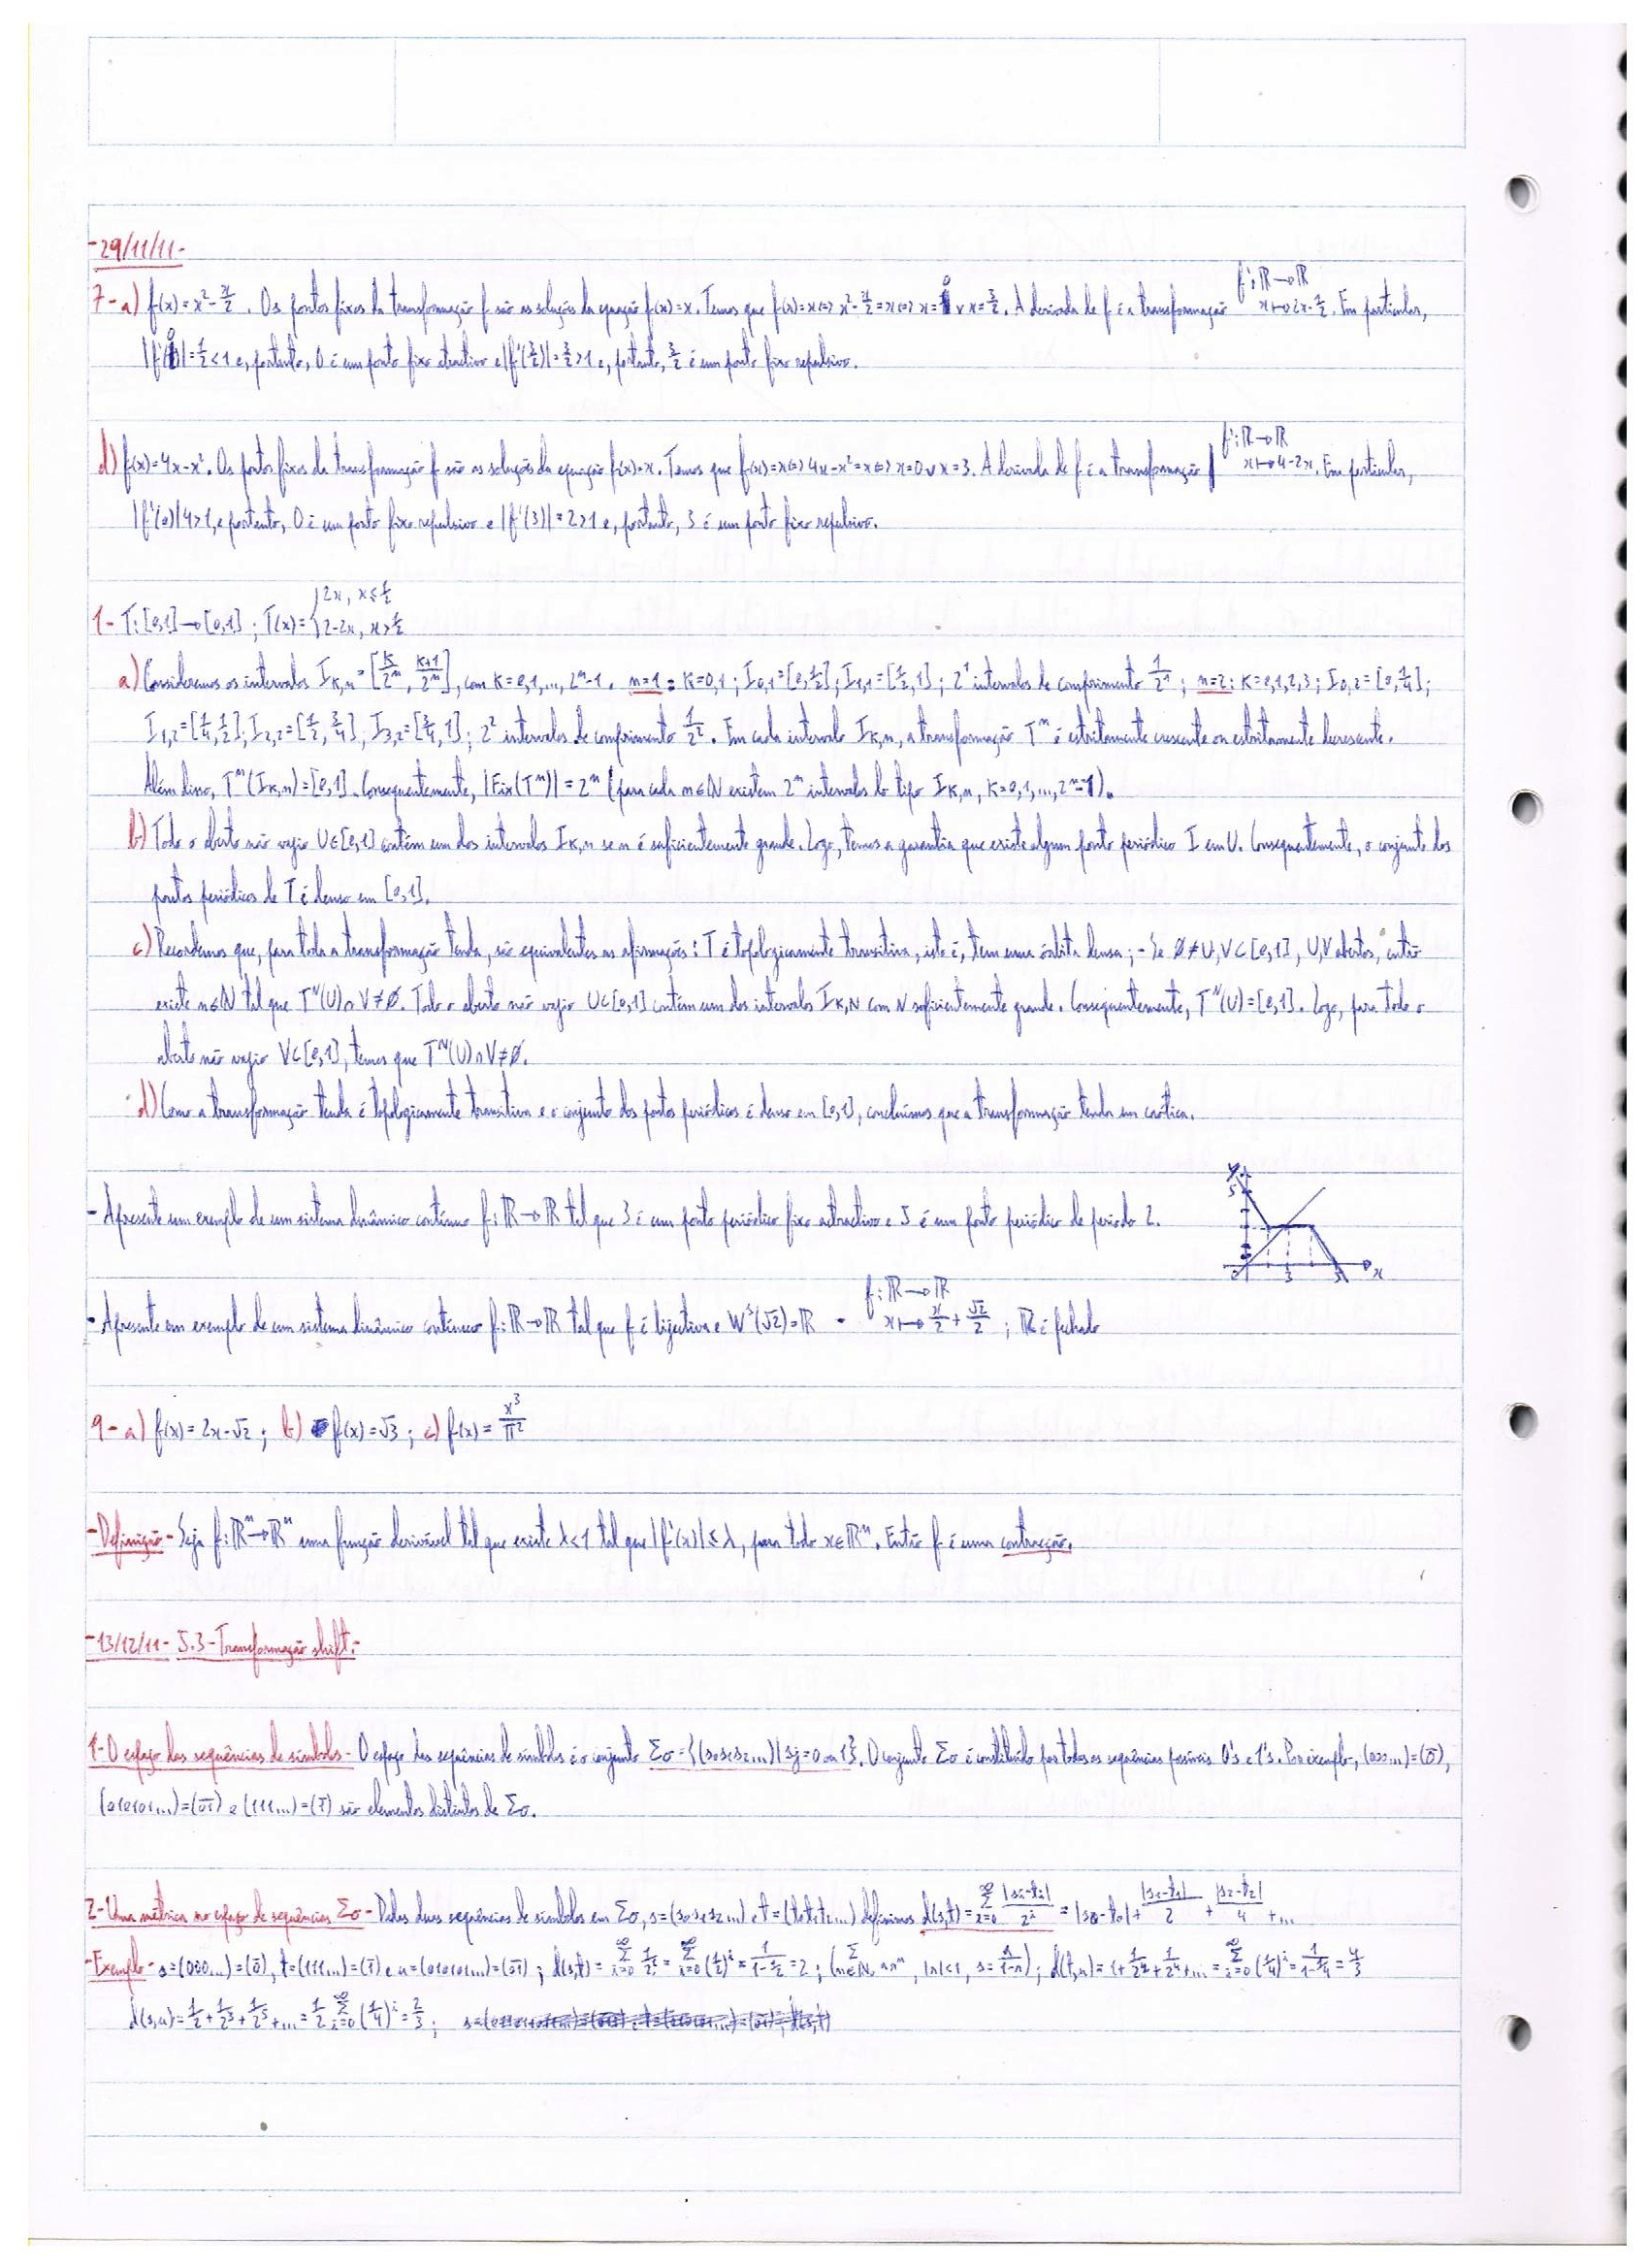 -29/11/11-
7-a) f(x)=x²-x/2. Os pontos fixos da transformação f são as soluções da equação f(x)=x. Temos que f(x)=x⇔x²-x/2=x⇔x=0∨x=3/2. A derivada de f é a transformação f':ℝ→ℝ x↦2x-1/2. Em particular,
|f'(0)|=1/2<1 e, portanto, 0 é um ponto fixo atractivo e |f'(3/2)|=5/2>1 e, portanto, 3/2 é um ponto fixo repulsivo.
d) f(x)=4x-x². Os pontos fixos da transformação f são as soluções da equação f(x)=x. Temos que f(x)=x⇔4x-x²=x⇔x=0∨x=3. A derivada de f é a transformação f':ℝ→ℝ x↦4-2x. Em particular,
|f'(0)|4>1, e portanto, 0 é um ponto fixo repulsivo e |f'(3)|=2>1 e, portanto, 3 é um ponto fixo repulsivo.
1- T:[0,1]→[0,1]; T(x)={2x, x≤1/2 2-2x, x>1/2
a) Consideremos os intervalos I_{K,n}=[K/2^n, (K+1)/2^n], com K=0,1,...,2^n-1. n=1: K=0,1; I_{0,1}=[0,1/2]; I_{1,1}=[1/2,1]; 2¹ intervalos de comprimento 1/2¹; n=2: K=0,1,2,3; I_{0,2}=[0,1/4];
I_{1,2}=[1/4,1/2]; I_{2,2}=[1/2,3/4], I_{3,2}=[3/4,1]; 2² intervalos de comprimento 1/2². Em cada intervalo I_{K,n}, a transformação T^n é estritamente crescente ou estritamente decrescente.
Além disso, T^n(I_{K,n})=[0,1]. Consequentemente, |Fix(T^n)|=2^n (para cada n∈ℕ existem 2^n intervalos do tipo I_{K,n}, K=0,1,...,2^n-1).
b) Todo o aberto não vazio U⊂[0,1] contém um dos intervalos I_{K,n} se n é suficientemente grande. Logo, temos a garantia que existe algum ponto periódico I em U. Consequentemente, o conjunto dos
pontos periódicos de T é denso em [0,1].
c) Recordemos que, para toda a transformação tenda, são equivalentes as afirmações: T é topologicamente transitiva, isto é, tem uma órbita densa; - Se ∅≠U,V⊂[0,1], U,V abertos, então
existe n∈ℕ tal que T^N(U)∩V≠∅. Todo o aberto não vazio U⊂[0,1] contém um dos intervalos I_{K,N} com N suficientemente grande. Consequentemente, T^N(U)=[0,1]. Logo, para todo o
aberto não vazio V⊂[0,1], temos que T^N(U)∩V≠∅.
d) Como a transformação tenda é topologicamente transitiva e o conjunto dos pontos periódicos é denso em [0,1], concluímos que a transformação tenda em caótica.
- Apresente um exemplo de um sistema dinâmico contínuo f:ℝ→ℝ tal que 3 é um ponto periódico fixo attractivo e 5 é um ponto periódico de período 2.
y 5 0 3 5 x
- Apresente um exemplo de um sistema dinâmico contínuo f:ℝ→ℝ tal que f é bijectiva e W^s(√2)=ℝ - f:ℝ→ℝ x↦x/2+√2/2; ℝ é fechado
9-a) f(x)=2x-√2; b) f(x)=√3; c) f(x)=x³/π²
-Definição- Seja f:ℝ^n→ℝ^n uma função derivável tal que existe λ<1 tal que |f'(x)|≤λ, para todo x∈ℝ^n. Então f é uma contracção.
-13/12/11- 5.3-Transformação shift:-
1-O espaço das sequências de símbolos- O espaço das sequências de símbolos é o conjunto Σσ={(s₀s₁s₂...)|sj=0 ou 1}. O conjunto Σσ é constituído por todas as sequências possíveis 0's e 1's. Por exemplo, (000...)=(0̅),
(010101...)=(0̅1̅) e (111...)=(1̅) são elementos distintos de Σσ.
2-Uma métrica no espaço de sequências Σσ- Dadas duas sequências de símbolos em Σσ, s=(s₀s₁s₂...) e t=(t₀t₁t₂...) definimos d(s,t)=∑_{i=0}^∞ |si-ti|/2^i=|s₀-t₀|+|s₁-t₁|/2+|s₂-t₂|/4+...
-Exemplo- s=(000...)=(0̅), t=(111...)=(1̅) e u=(010101...)=(0̅1̅); d(s,t)=∑_{i=0}^∞ 1/2^i=∑_{i=0}^∞(1/2)^i=1/(1-1/2)=2; (∑_{n∈ℕ₀} ar^n, |r|<1, s=a/(1-r)); d(t,u)=1+1/2²+1/2⁴+...=∑_{i=0}^∞(1/4)^i=1/(1-1/4)=4/3
d(s,u)=1/2+1/2³+1/2⁵+...=1/2∑_{i=0}^∞(1/4)^i=2/3;